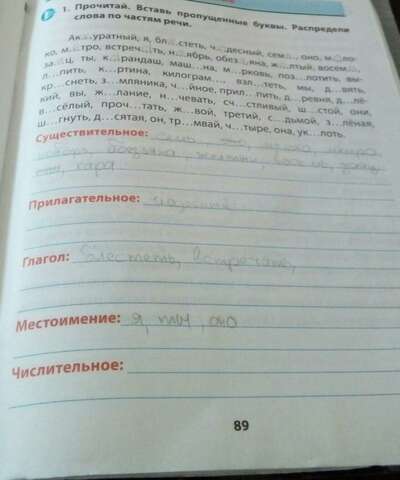 1. Прочитай. Вставь пропущенные буквы. Распредели
слова по частям речи.
Ак...уратный, я, бл...стеть, ч...десный, сем..., оно, м...ло-
ко, м...тро, встреч...ть, н...ябрь, обез...яна, ж...лтый, восем...,
за...ц, ты, к...рандаш, маш...на, м...рковь, поз...лотить, вы-
л...пить, к...ртина, килограм..., взл...теть, мы, д...вять,
кр...снеть, з...мляника, ч...йное, прил...пить, д...ревня, д...лё-
кий, вы, ж...лание, н...чевать, сч...стливый, ш...стой, они,
в...сёлый, проч...тать, ж...вой, третий, с...дьмой, з...лёная,
ш...гнуть, д...сятая, он, тр...мвай, ч...тыре, она, ук...лоть.
Существительное:
Прилагательное:
Глагол: блестеть, встречать,
Местоимение: я, ты, оно
Числительное:
89